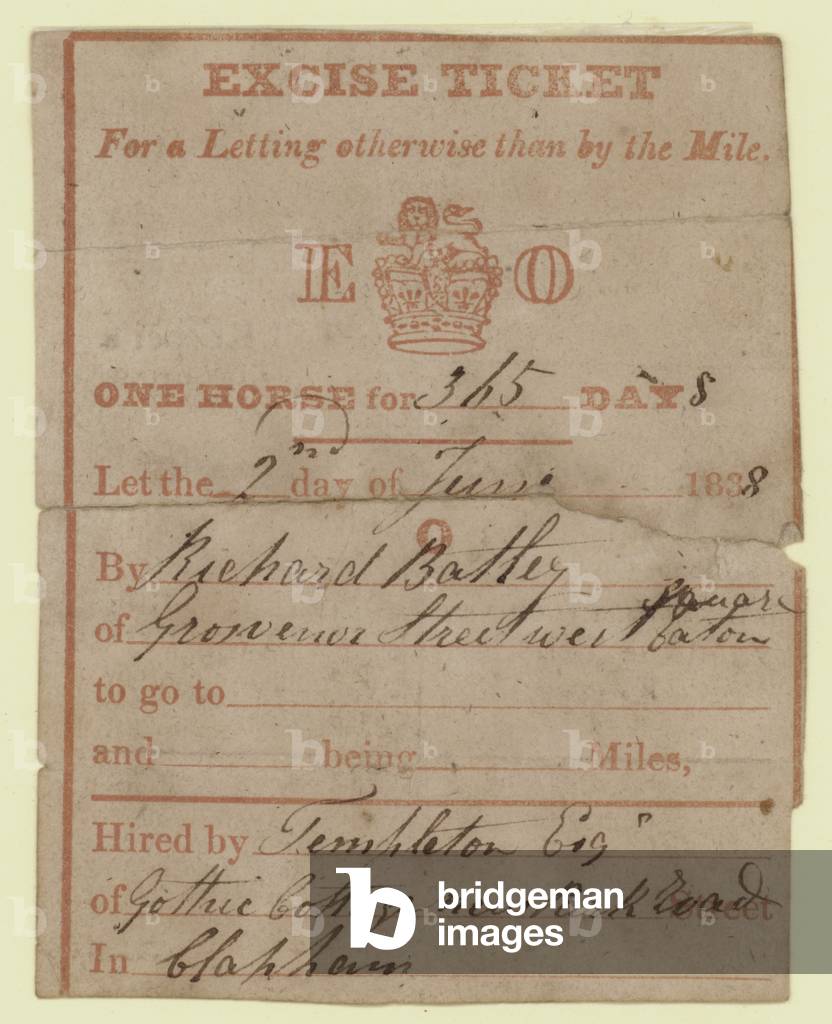 EXCISE TICKET
For a Letting otherwise than by the Mile.
E O
ONE HORSE for 365 DAYs
Let the 2nd day of June 1838
9
By Richard Batley
square
of Grosvenor Street west Eaton
to go to
and being Miles,
Hired by Templeton Esqr
of Gothic Cottage Park Road Street
In Clapham
b bridgeman images